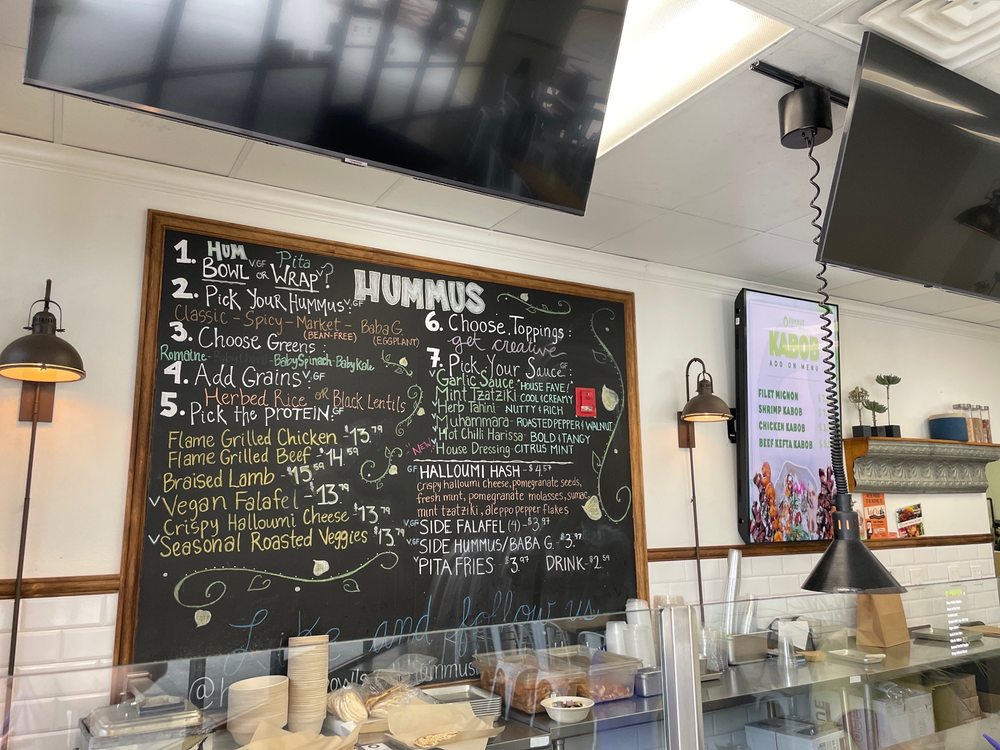 HUMMUS
1. HUM Pita
BOWL OR WRAP?
V,GF V
2. Pick Your HUMMUS V,GF
Classic - Spicy - Market - Baba G.
(BEAN-FREE) (EGGPLANT)
3. Choose Greens:
Romaine - Baby Spinach - Baby Kale
4. Add Grains V,GF
Herbed Rice OR Black Lentils
5. Pick the PROTEIN GF
Flame Grilled Chicken - $13.79
Flame Grilled Beef - $14.59
Braised Lamb - $15.59
V Vegan Falafel - $13.79
Crispy Halloumi Cheese - $13.79
V Seasonal Roasted Veggies $13.79
6. Choose Toppings:
get creative
7. Pick Your Sauce: GF
V Garlic Sauce "HOUSE FAVE!"
Mint Tzatziki COOL & CREAMY
Herb Tahini - NUTTY & RICH
V Muhammara - ROASTED PEPPER & WALNUT
V Hot Chilli Harissa - BOLD & TANGY
"NEW" V House Dressing - CITRUS MINT
GF HALLOUMI HASH - $4.57
Crispy halloumi cheese, pomegranate seeds,
fresh mint, pomegranate molasses, sumac
mint tzatziki, aleppo pepper flakes
V,GF SIDE FALAFEL (4) - $3.97
V,GF SIDE HUMMUS/BABA G. - $3.97
V PITA FRIES - $3.97 DRINK - $2.59
Like and follow us
KABOB
ADD ON MENU
FILET MIGNON
SHRIMP KABOB
CHICKEN KABOB
BEEF KEFTA KABOB